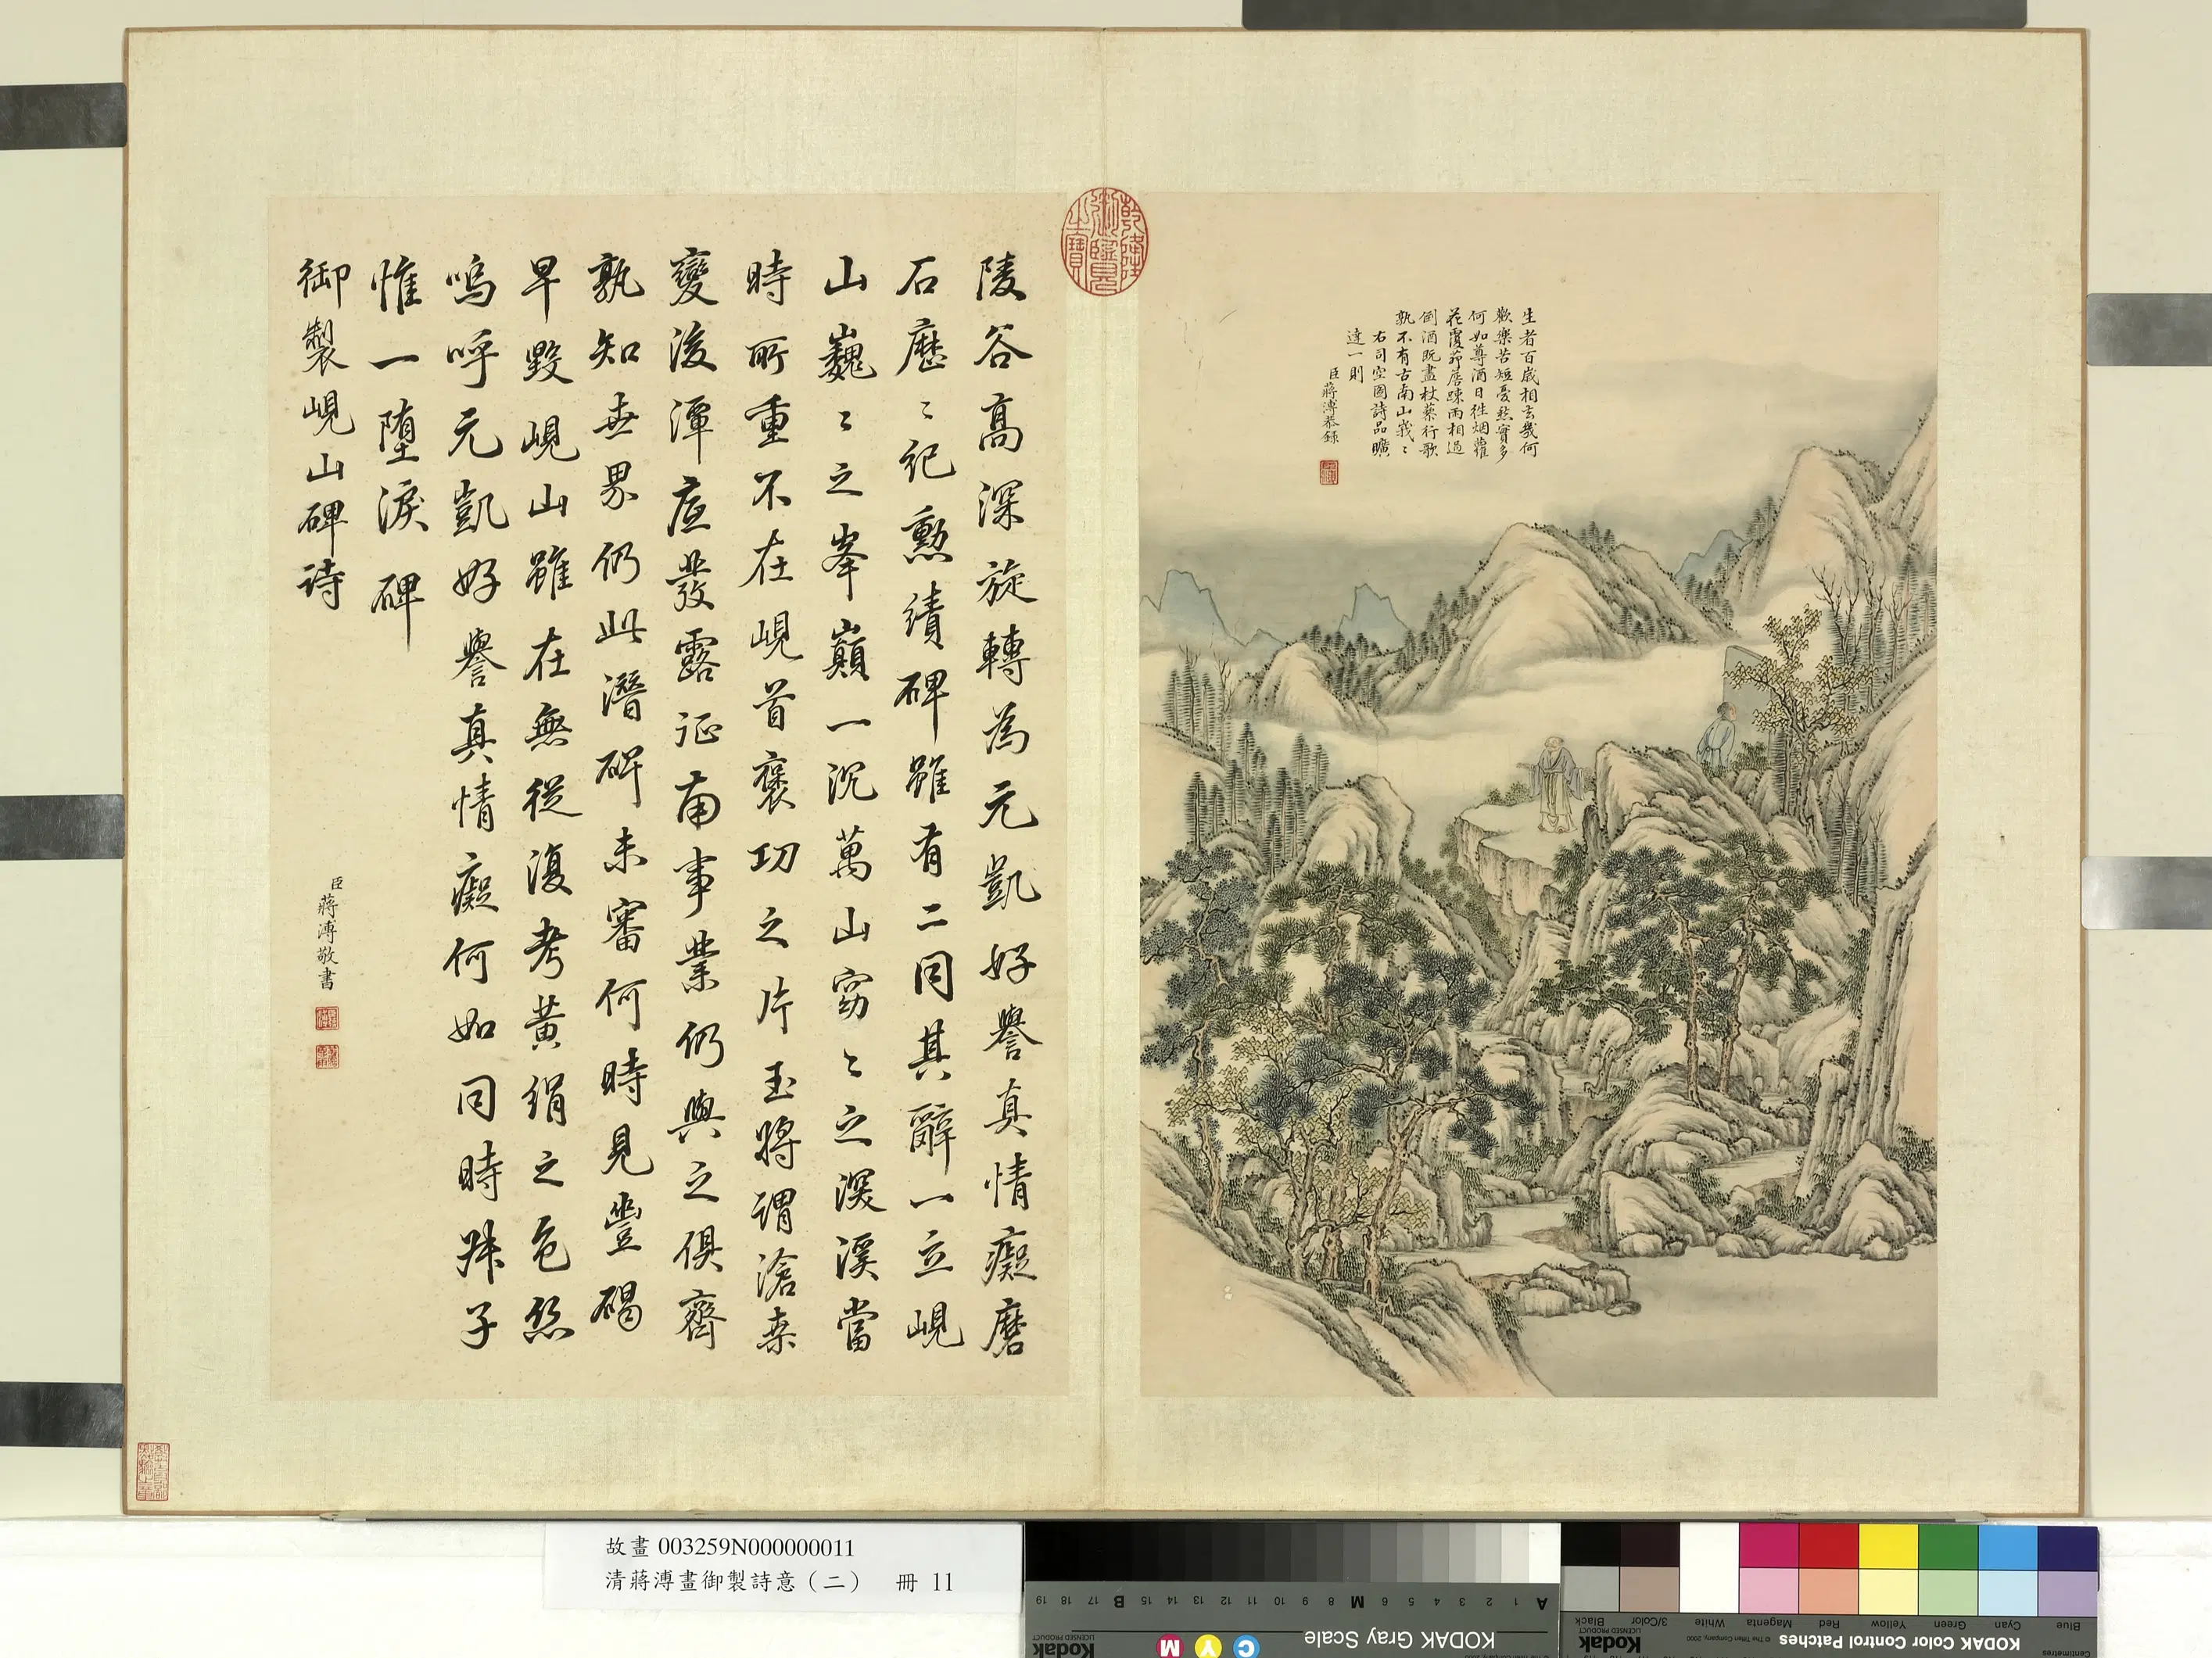 生者百歲相去幾何
歡樂苦短憂愁實多
何如尊酒日往烟蘿
花覆茆簷疎雨相過
倒酒既盡杖藜行歌
孰不有古南山峩〻
右司空圖詩品曠
達一則
臣蔣溥恭錄
乾隆御覽之寶
陵谷高深旋轉為元凱好譽真情癡磨
石歷〻紀勲績碑雖有二同其辭一立峴
山巍〻之峯巔一沉萬山窈〻之深溪當
時所重不在峴首褒功之片玉將謂滄桑
變後潭底發露征南事業仍與之俱齊
孰知世界仍此潛碑未審何時見豐碣
早毀峴山雖在無從復考黃絹之色絲
嗚呼元凱好譽真情癡何如同時妹子
惟一墮淚碑
御製峴山碑詩
臣蔣溥敬書
故畫 003259N000000011
清蔣溥畫御製詩意（二） 冊 11
KODAK Gray Scale
Kodak
LICENSED PRODUCT
A 1 2 3 4 5 6 M 8 9 10 11 12 13 14 15 B 17 18 19
C Y M
KODAK Color Control Patches
Kodak
LICENSED PRODUCT
© The Tiffen Company, 2000
Centimetres
Blue Cyan Green Yellow Red Magenta White 3/Color Black